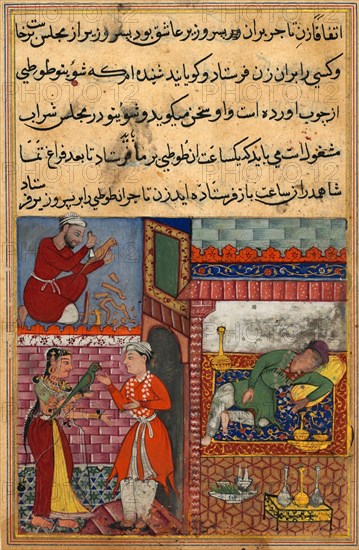 اتفاقا زن تاجر بران پسر وزیر عاشق بود پسر وزیر از مجلس برخاست
وکسی را بران زن فرستاد و کویاند شنیده ام که شوی تو طوطی
از چوب آورده است و او سخن میکوید و شوی تو در مجلس شراب
مشغولست می باید که یکساعت ان طوطی بر ما فرستاد تا بعد فراغ تماشا
شاهد از ساعت باز فرستاده اید زن تاجر ان طوطی را بر پسر وزیر فرستاد